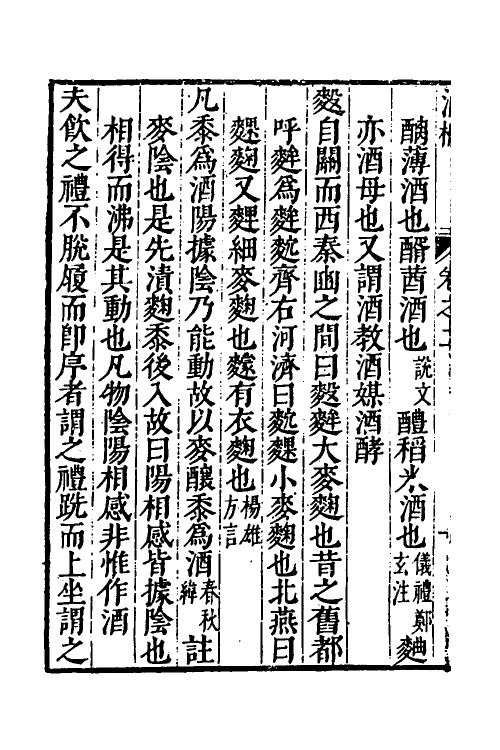 酒概 卷之二
醨薄酒也醑莤酒也說文醴稻米酒也儀禮鄭玄注麯
亦酒母也又謂酒教酒媒酒酵
䴬自關而西秦豳之間曰䴬䴺大麥麴也昔之舊都
呼䴺為䴺䴭齊右河濟曰䴭䴹小麥麴也北燕曰
䴹麴又䴹細麥麴也䴿有衣麴也楊雄方言
凡黍為酒陽據陰乃能動故以麥釀黍為酒春秋緯註
麥陰也是先漬麴黍後入故曰陽相感皆據陰也
相得而沸是其動也凡物陰陽相感非惟作酒
夫飲之禮不脫屨而即序者謂之禮跣而上坐謂之